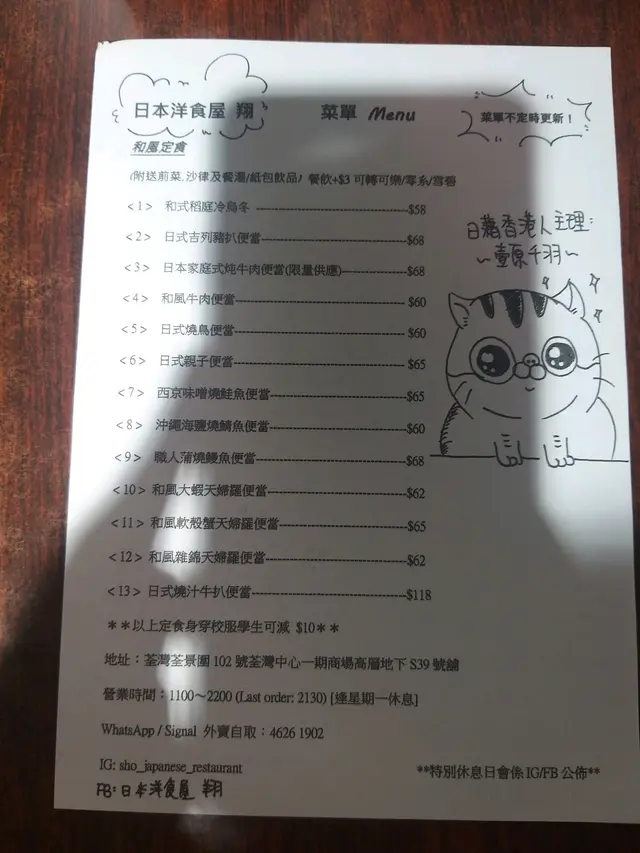 日本洋食屋 翔
菜單 Menu
菜單不定時更新！
和風定食
(附送前菜,沙律及餐湯/紙包飲品) 餐飲+$3 可轉可樂/零系/雪碧
<1> 和式稻庭冷烏冬 $58
<2> 日式吉列豬扒便當 $68
<3> 日本家庭式炖牛肉便當(限量供應) $68
<4> 和風牛肉便當 $60
<5> 日式燒鳥便當 $60
<6> 日式親子便當 $65
<7> 西京味噌燒鮭魚便當 $65
<8> 沖繩海鹽燒鯖魚便當 $60
<9> 職人蒲燒鰻魚便當 $68
<10> 和風大蝦天婦羅便當 $62
<11> 和風軟殼蟹天婦羅便當 $65
<12> 和風雜錦天婦羅便當 $62
<13> 日式燒汁牛扒便當 $118
**以上定食身穿校服學生可減 $10**
地址：荃灣荃景圍 102 號荃灣中心一期商場高層地下 S39 號舖
營業時間：1100～2200 (Last order: 2130) [逢星期一休息]
WhatsApp / Signal 外賣自取：4626 1902
IG: sho_japanese_restaurant
FB: 日本洋食屋 翔
**特別休息日會係 IG/FB 公佈**
香港人主理:
千羽～